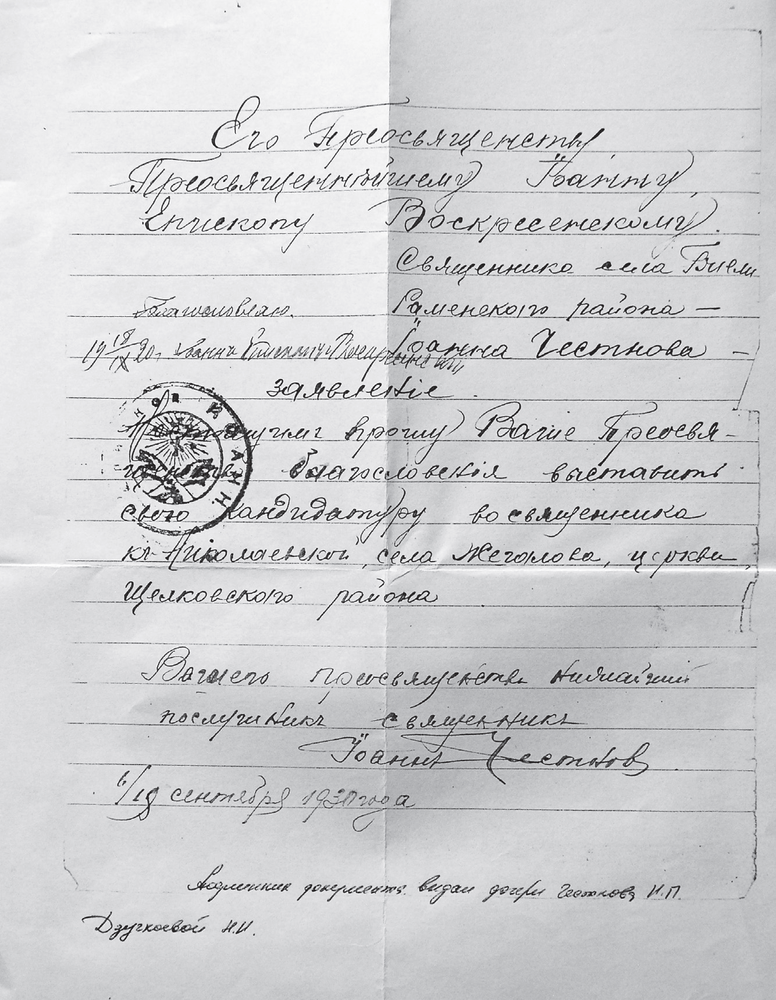 Его Преосвященству
Преосвященнѣйшему Іоанну,
Епископу Воскресенскому.
Священника села
Благословляю. Раменского района —
Іоанна Честнова —
заявленіе.
прошу Ваше Преосвя-
благословенія выставить
свою кандидатуру во священника
къ Николаевской, села Жегалова, церкви,
Щелковского района
Вашего преосвященства нижайший
послушникъ священникъ
Іоаннъ Честнов
6/19 сентября 1930 года
Подлинник документа выдан дочери Честнова И.П.
Дзучкоевой Н.И.